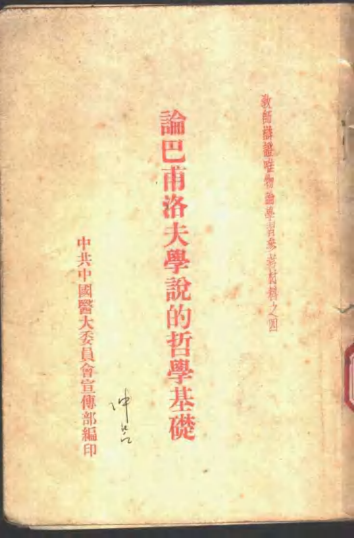 教師辯證唯物論學習參考材料之四
論巴甫洛夫學說的哲學基礎
中共中國醫大委員會宣傳部編印